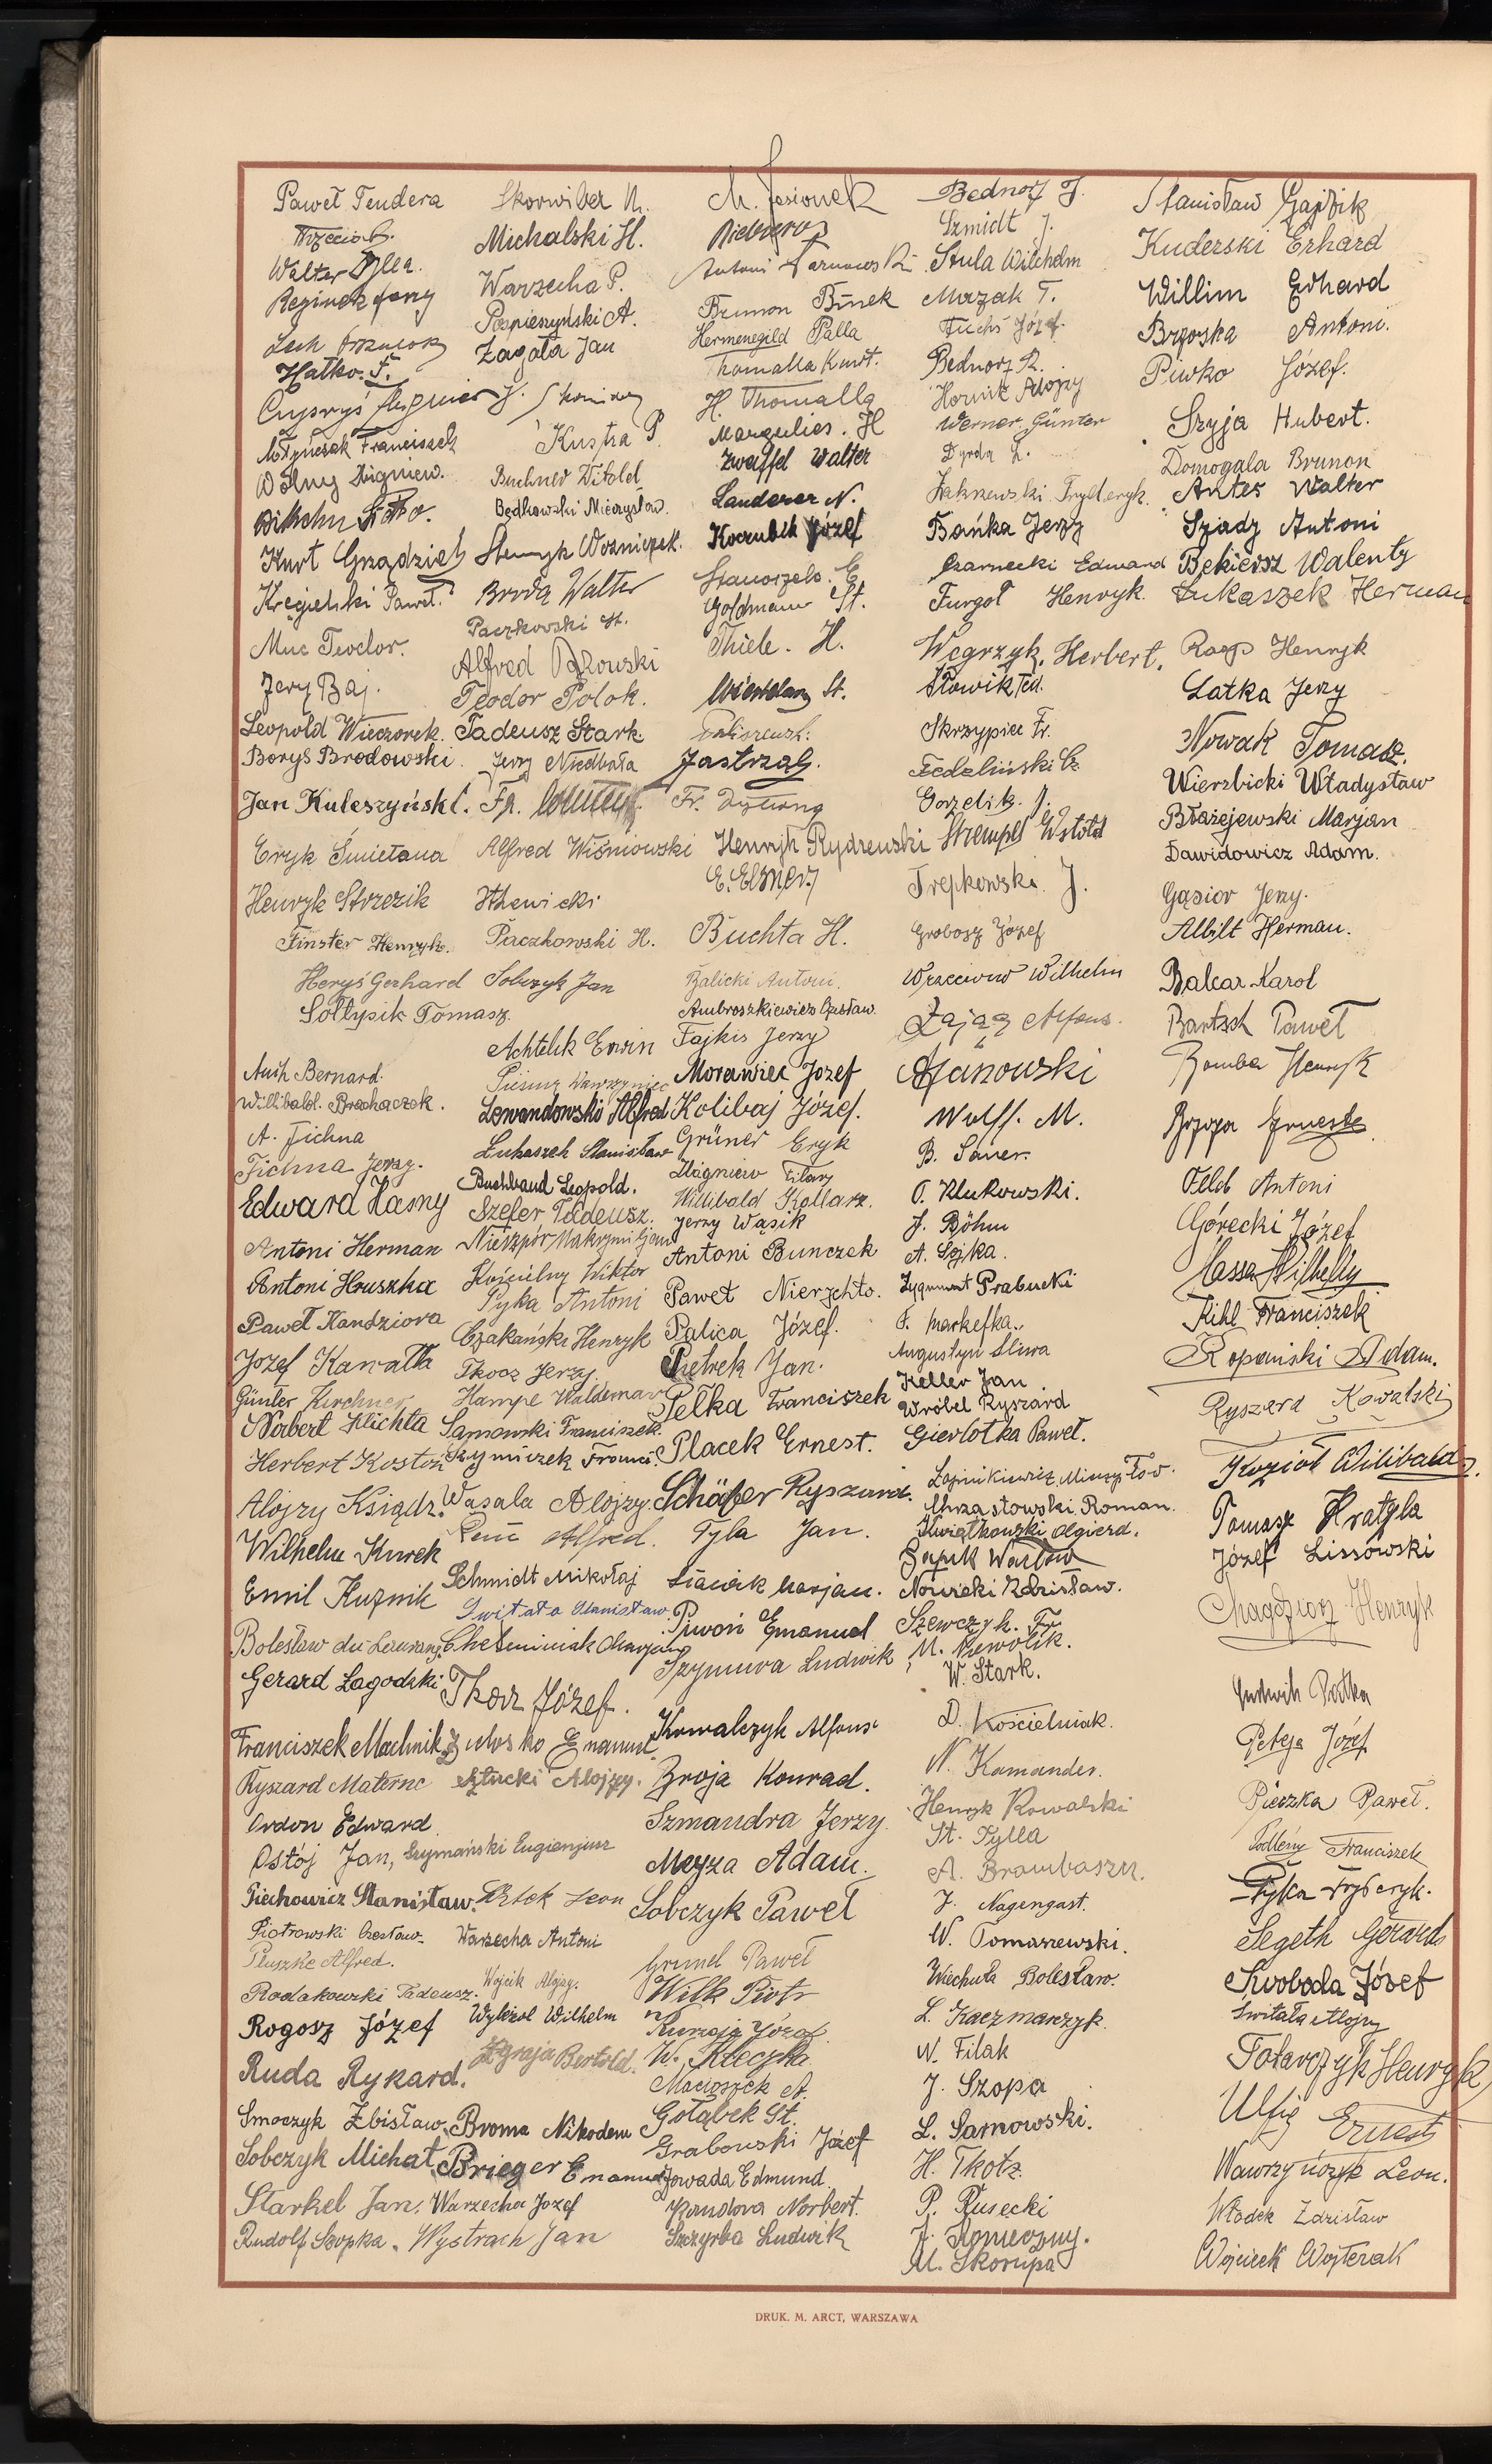 Paweł Tendera
Walter Dyller.
Reginek Jerzy
Lech
Hatko. F.
Cuprys
Młyńczak Franciszek
Wolny Zbigniew.
Kurt Grządziel
Kręgielski Paweł.
Muc Teodor.
Jerzy Baj.
Leopold Wieczorek.
Borys Brodowski.
Jan Kuleszyński.
Eryk Śmietana
Henryk Strzezik
Finster Henryk.
Heryś Gerhard
Sołtysik Tomasz.
Auih Bernard.
Willibald. Brachaczek.
A. Fichna
Fichna Jerzy.
Edward Hasny
Antoni Herman
Antoni Hruszka
Paweł Kandziora
Józef Kawalla
Günter Kirchner
Norbert Klichta
Herbert Kostoń
Alojzy Ksiądz.
Wilhelm Kurek
Emil Kuźnik
Bolesław du Laurans.
Gerard Lagodzki
Franciszek Machnik
Ryszard Materne
Ordon Edward
Ostój Jan,
Piechowicz Stanisław.
Piotrowski Czesław.
Pluszke Alfred.
Radakowski Tadeusz.
Rogosz Józef
Ruda Rykard.
Smoczyk Zbisław.
Sobczyk Michał
Starkel Jan.
Rudolf Szopka.
Skorwiber M.
Michalski H.
Warzecha P.
Pospieszyński A.
Żagała Jan
J. Skomidey
Kustra P.
Buchner Witold
Będkowski Mieczysław.
Henryk Woźniczek.
Broda Walter
Paczkowski St.
Alfred
Teodor Polok.
Tadeusz Stark
Jerzy Niedbała
Fr.
Alfred Wiśniowski
Ithewicki
Paczkowski H.
Sobczyk Jan
Achtelik Erwin
Piesiur Wawrzyniec
Lewandowski Alfred
Lukaszek Stanisław
Buchband Leopold.
Szefer Tadeusz.
Nieszpór Maksymiljan
Kościelny Wiktor
Pyka Antoni
Czakański Henryk
Tkocz Jerzy.
Hampe Waldemar
Sarnowski Franciszek.
Szymiczek Franc.
Wąsala Alojzy.
Penc Alfred.
Schmidt Mikołaj
Świtała Stanisław.
Chełminiak Marjan
Tkocz Józef.
Żymłosko Emanuel
Sztucki Alojzy.
Szymański Eugienjusz
Ziłok Leon
Warzecha Antoni
Wójcik Alojzy.
Wyleżol Wilhelm
Zgraja Bertold.
Broma Nikodem
Brieger Emanuel
Warzecha Jozef
Wystrach Jan
M. Jesionek
Antoni Tarnowski
Brunon Binek
Hermenegild Palla
Thomalla Kurt.
H. Thomalla
Margulies. H
Zwaffel Walter
Landerer N.
Koczubik Józef
Goldmann St.
Thiele. H.
Wiesław St.
Jastrząb.
Fr.
Henryk Rydzewski
E. Elsner.
Buchta H.
Żalicki Antoni.
Ambroszkiewicz Czesław.
Fajkis Jerzy
Morawiec Jozef
Kolibaj Józef.
Grüner Eryk
Zbigniew Filary
Willibald Kollarz.
Jerzy Wąsik
Antoni Bunczek
Paweł Nierychło.
Palica Józef.
Pietrek Jan.
Pełka Franciszek
Placek Ernest.
Schäfer Ryszard.
Tyla Jan.
Sławik Marjan.
Piwoń Emanuel
Szymura Ludwik
Kowalczyk Alfons
Broja Konrad.
Szmandra Jerzy.
Meyza Adam.
Sobczyk Paweł
Grund Paweł
Wilk Piotr
Kurzeja Józef
W. Kłeczka
Macioszek A.
Gołąbek St.
Grabowski Józef
Jowada Edmund.
Kandora Norbert.
Szczyrba Ludwik
Bednorz J.
Szmidt J.
Stula Wilchelm
Mazak T.
Fuchs Józef.
Bednorz R.
Hornik Alojzy
Werner Günter
Dyrda L.
Zakrzewski Fryderyk.
Bańka Jerzy
Czarnecki Edmund
Furgoł Henryk.
Węgrzyk, Herbert.
Słowik Ted.
Skrzypiec Fr.
Fedzliński Cz
Gorzelik. J.
Strempel Witold
Trepkowski. J.
Grobosz Józef
Wrzeciono Wilhelm
Zając Alfons.
A Janowski
Wolff. M.
B. Sauer.
O. Klukowski.
J. Böhm
A. Sojka.
Zygmunt Prabucki
F. Markefka.
Augustyn Śliwa
Keller Jan
Wróbel Ryszard
Gierlotka Paweł.
Łazinkiewicz Mieczysław.
Chrząstowski Roman.
Kwiatkowski Olgierd.
Sapuk Wacław
Nowicki Zdzisław.
Szewczyk. Fr.
M. Niewolik.
W. Stark.
D. Kościelniak.
N. Komander.
Henryk Kowalski
St. Tylla
A. Brambaszu.
J. Nagengast.
W. Tomaszewski.
Wiechuła Bolesław.
L. Kaczmarczyk.
N. Filak
J. Szopa
L. Sarnowski.
H. Tkotz.
P. Rusecki
J. Konieczny.
M. Skorupa
Stanisław Gajdzik
Kuderski Erhard
Willim Erhard
Brzoska Antoni.
Piwko Józef.
Szyja Hubert.
Domogala Brunon
Antes Walter
Sziady Antoni
Bękiersz Walenty
Łukaszek Herman
Raap Henryk
Latka Jerzy
Nowak Tomasz.
Wierzbicki Władysław
Błażejewski Marjan
Dawidowicz Adam.
Gąsior Jerzy.
Albilt Herman.
Balcar Karol
Bartsch Paweł
Bomba Henryk
Brzoza Ernest
Feld Antoni
Górecki Józef
Hassa Wilhelm
Kihl Franciszek
Kopański Adam.
Ryszard Kowalski
Kozioł Wilibald.
Tomasz Kratyla
Józef Lissowski
Magdziorz Henryk
Ludwik Patka
Peteja Józef
Pieczka Paweł.
Podleśny Franciszek
Pyka Fryderyk.
Segeth Gerard
Swoboda Józef
Świtała Alojzy
Tatarczyk Henryk
Ulfig Ernest
Wawrzyńczyk Leon.
Władek Zdzisław
Wojciech Wojterak
DRUK. M. ARCT, WARSZAWA